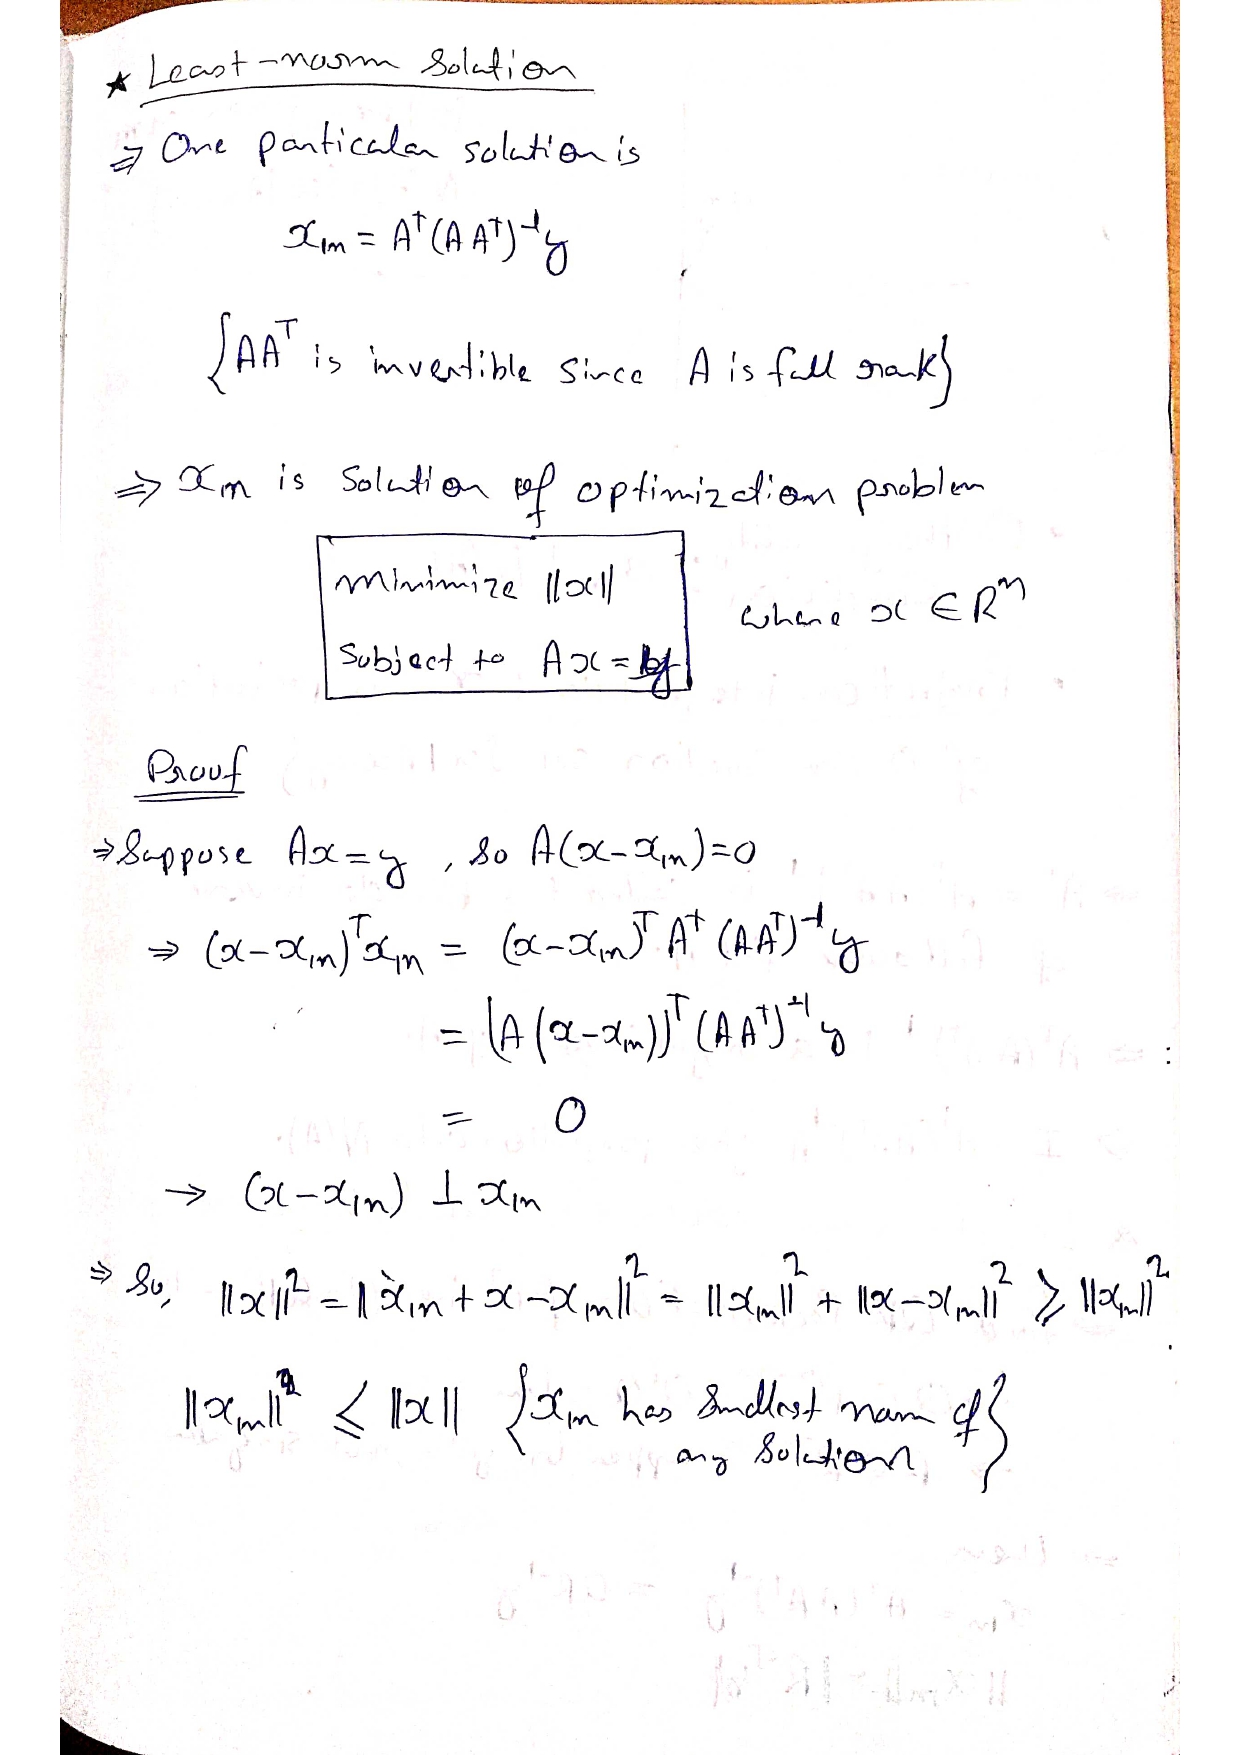 ★ Least-norm Solution
⇒ One particular solution is
xₗₙ = Aᵀ(AAᵀ)⁻¹y
{AAᵀ is invertible since A is full rank}
⇒ xₗₙ is Solution of optimization problem
minimize ||x||
Subject to Ax = y
where x ∈ Rⁿ
Proof
⇒ Suppose Ax = y , So A(x-xₗₙ)=0
⇒ (x-xₗₙ)ᵀxₗₙ = (x-xₗₙ)ᵀ Aᵀ (AAᵀ)⁻¹y
= (A(x-xₗₙ))ᵀ (AAᵀ)⁻¹y
= 0
→ (x-xₗₙ) ⊥ xₗₙ
⇒ So, ||x||² = ||xₗₙ + x - xₗₙ||² = ||xₗₙ||² + ||x-xₗₙ||² ≥ ||xₗₙ||²
||xₗₙ|| ≤ ||x|| {xₗₙ has Smallest norm of
any Solution}